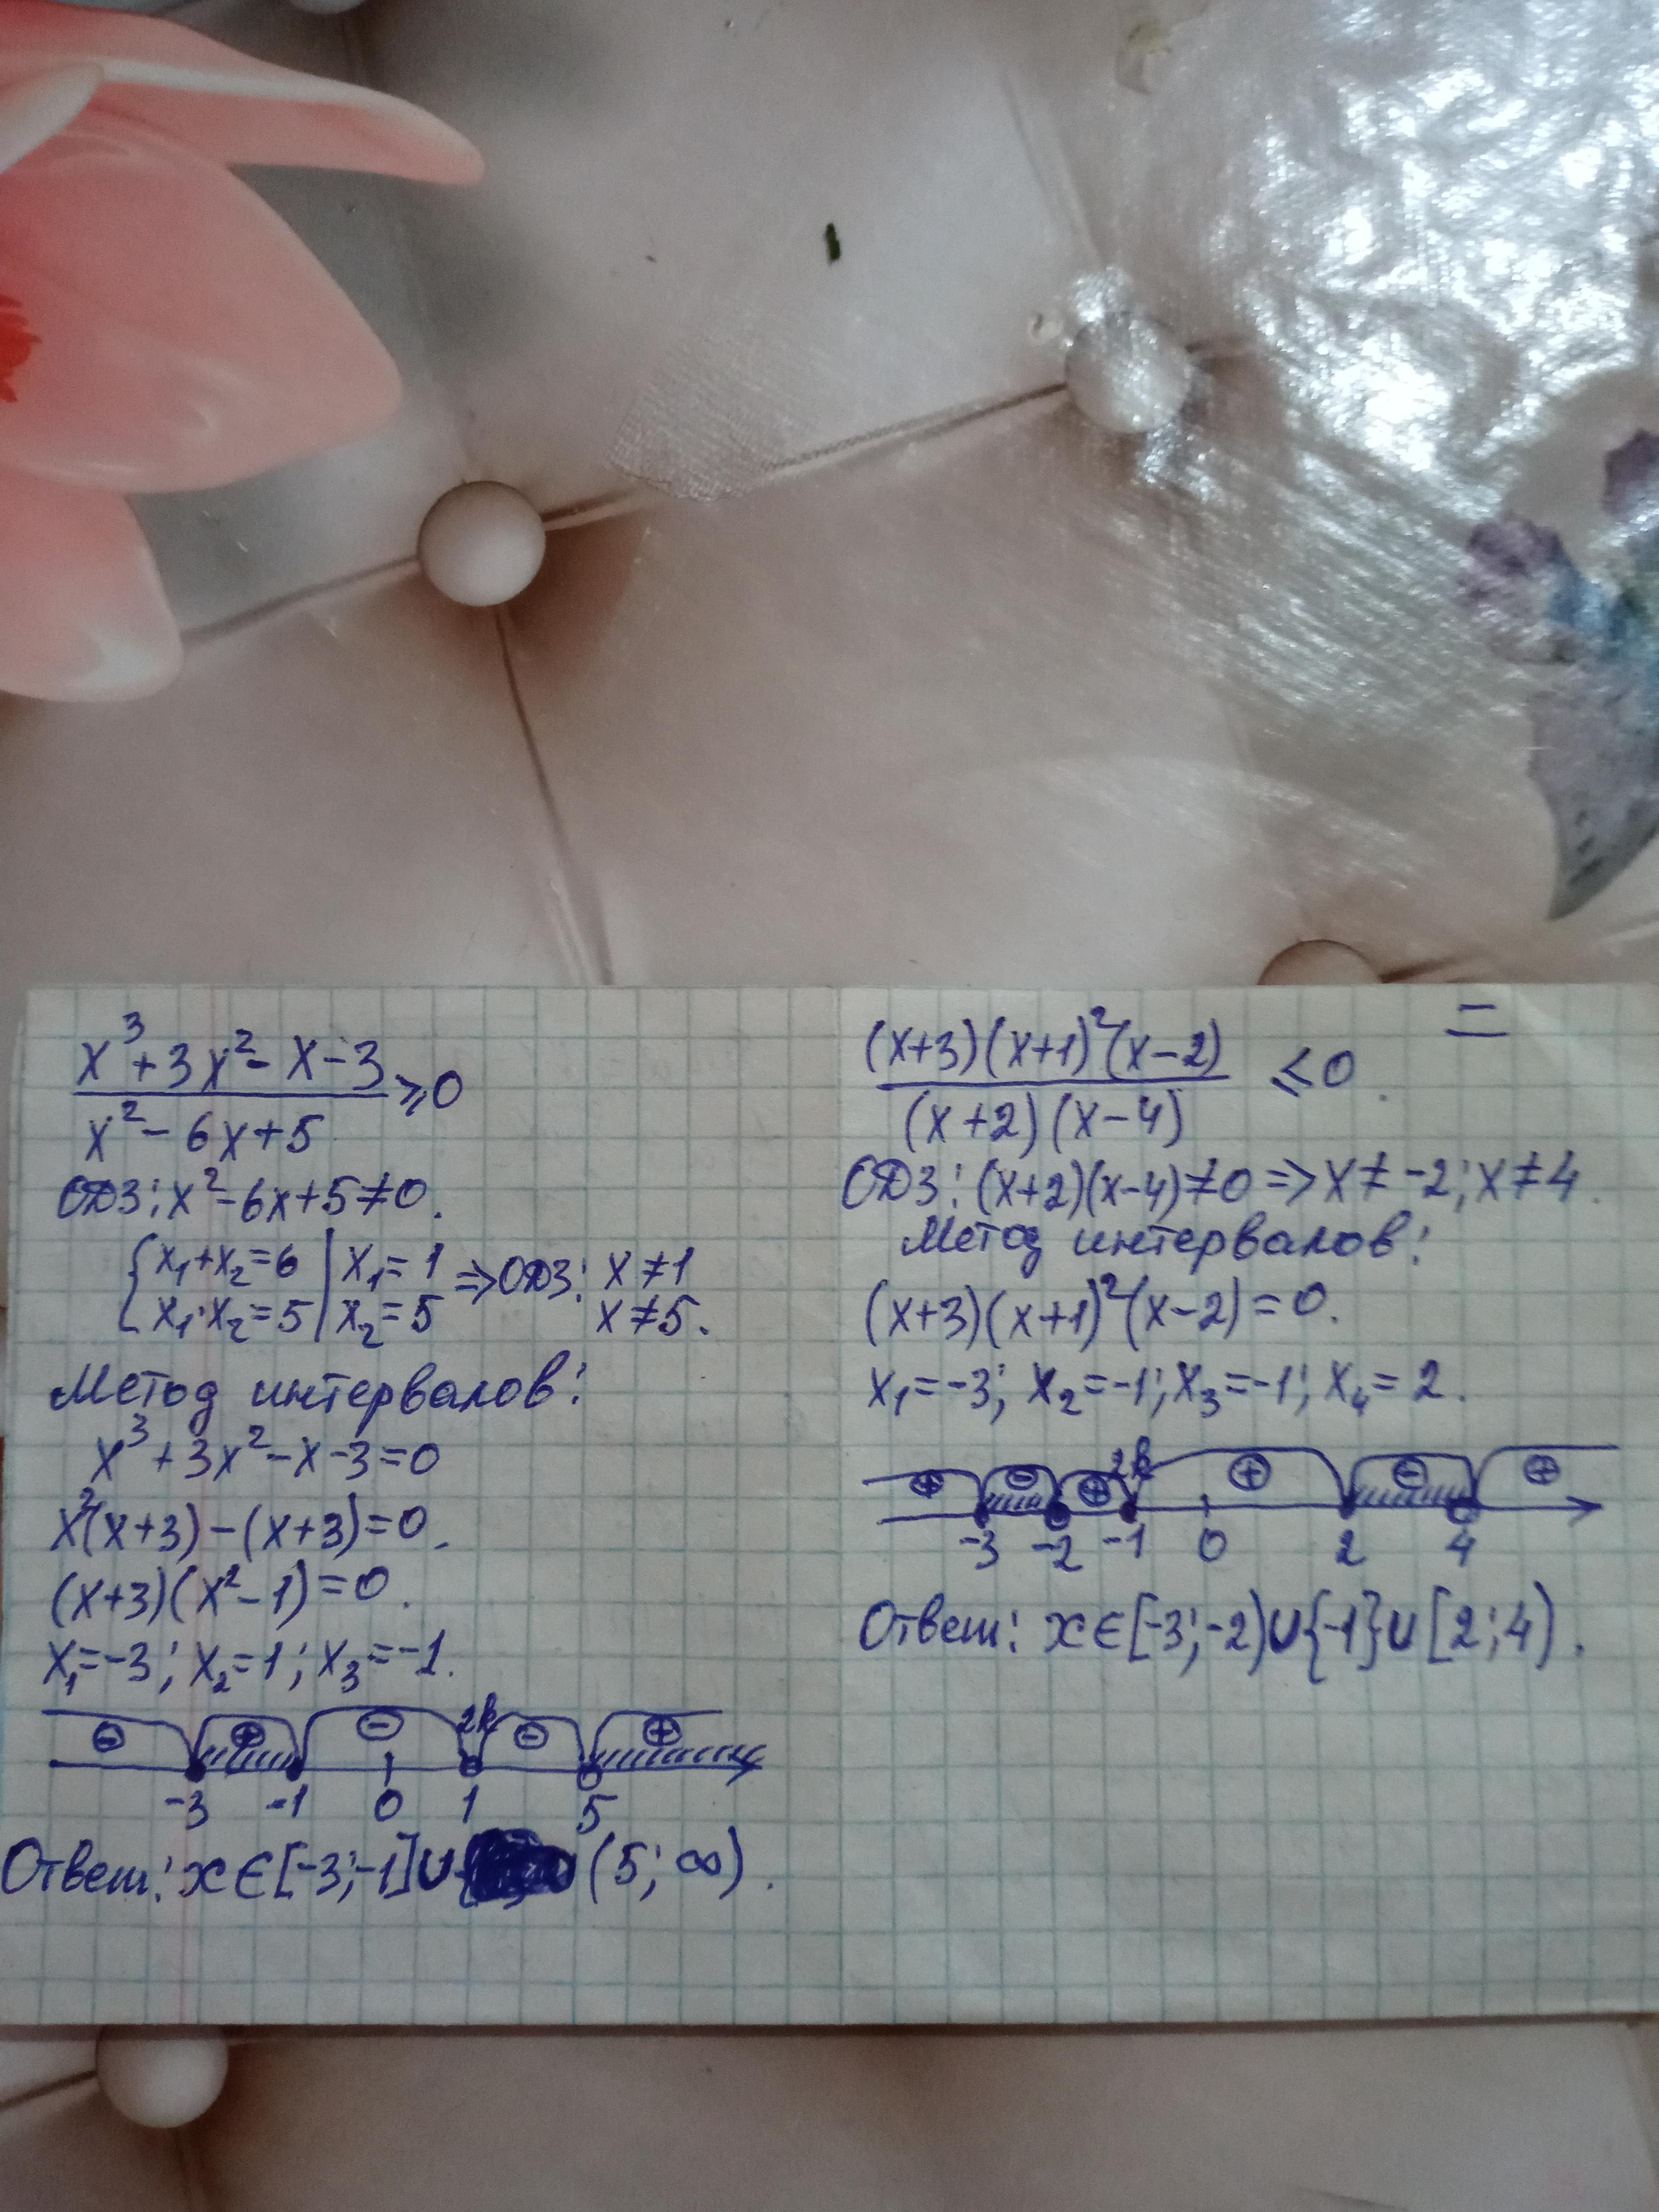 x³+3x²-x-3
x²-6x+5
≥0
ОДЗ: x²-6x+5≠0.
x₁+x₂=6 | x₁=1
x₁·x₂=5 | x₂=5
=> ОДЗ: x≠1
x≠5.
Метод интервалов:
x³+3x²-x-3=0
x²(x+3)-(x+3)=0.
(x+3)(x²-1)=0.
x₁=-3; x₂=1; x₃=-1.
- + - 2k - +
-3 -1 0 1 5
Ответ: x∈[-3;-1]∪(5;∞).
=
(x+3)(x+1)²(x-2)
(x+2)(x-4)
≤0.
ОДЗ: (x+2)(x-4)≠0=>x≠-2; x≠4.
Метод интервалов:
(x+3)(x+1)²(x-2)=0.
x₁=-3; x₂=-1; x₃=-1; x₄=2.
+ - + 2k + - +
-3 -2 -1 0 2 4
Ответ: x∈[-3;-2)∪{-1}∪[2;4).